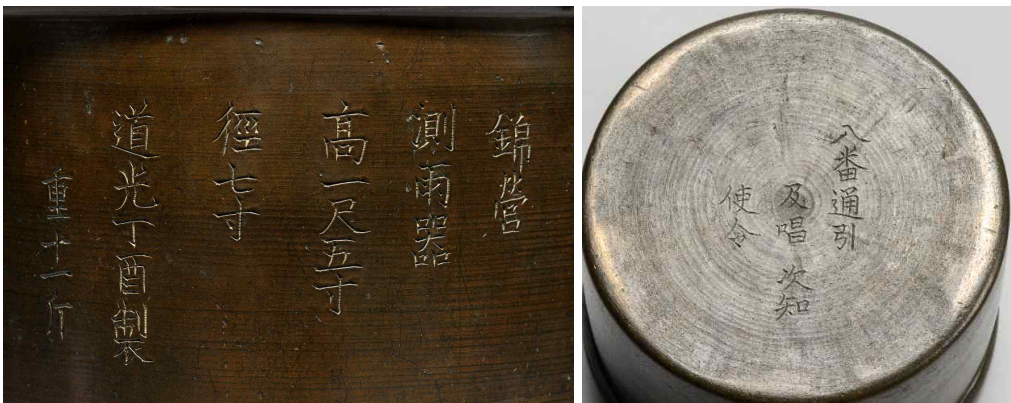 錦營
測雨器
高一尺五寸
徑七寸
道光丁酉製
重十一斤
八番通引
及唱 次知
使令